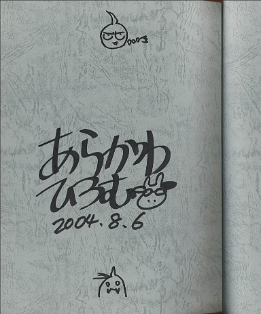 あらかわ
ひろむ
2004.8.6